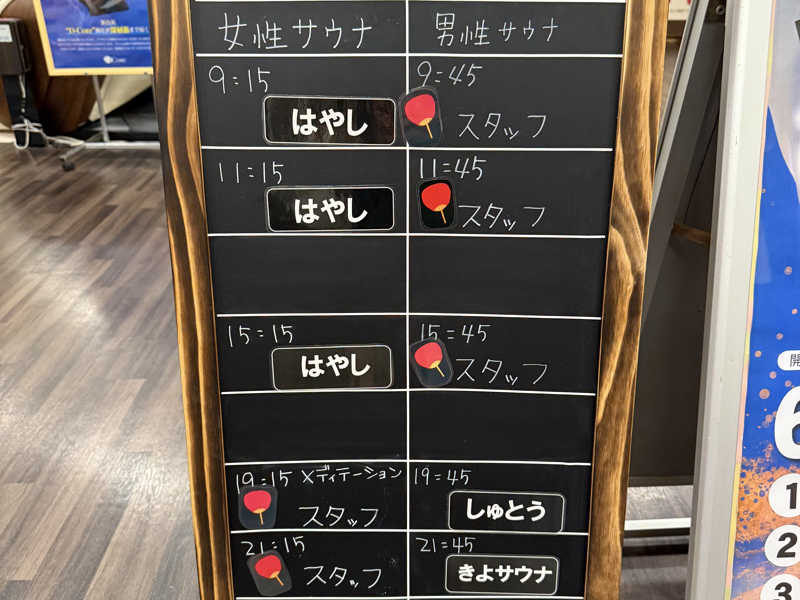 女性サウナ 男性サウナ
9:15 9:45
はやし スタッフ
11:15 11:45
はやし スタッフ
15:15 15:45
はやし スタッフ
19:15 メディテーション 19:45
スタッフ しゅとう
21:15 21:45
スタッフ きよサウナ
開
6
1
2
3